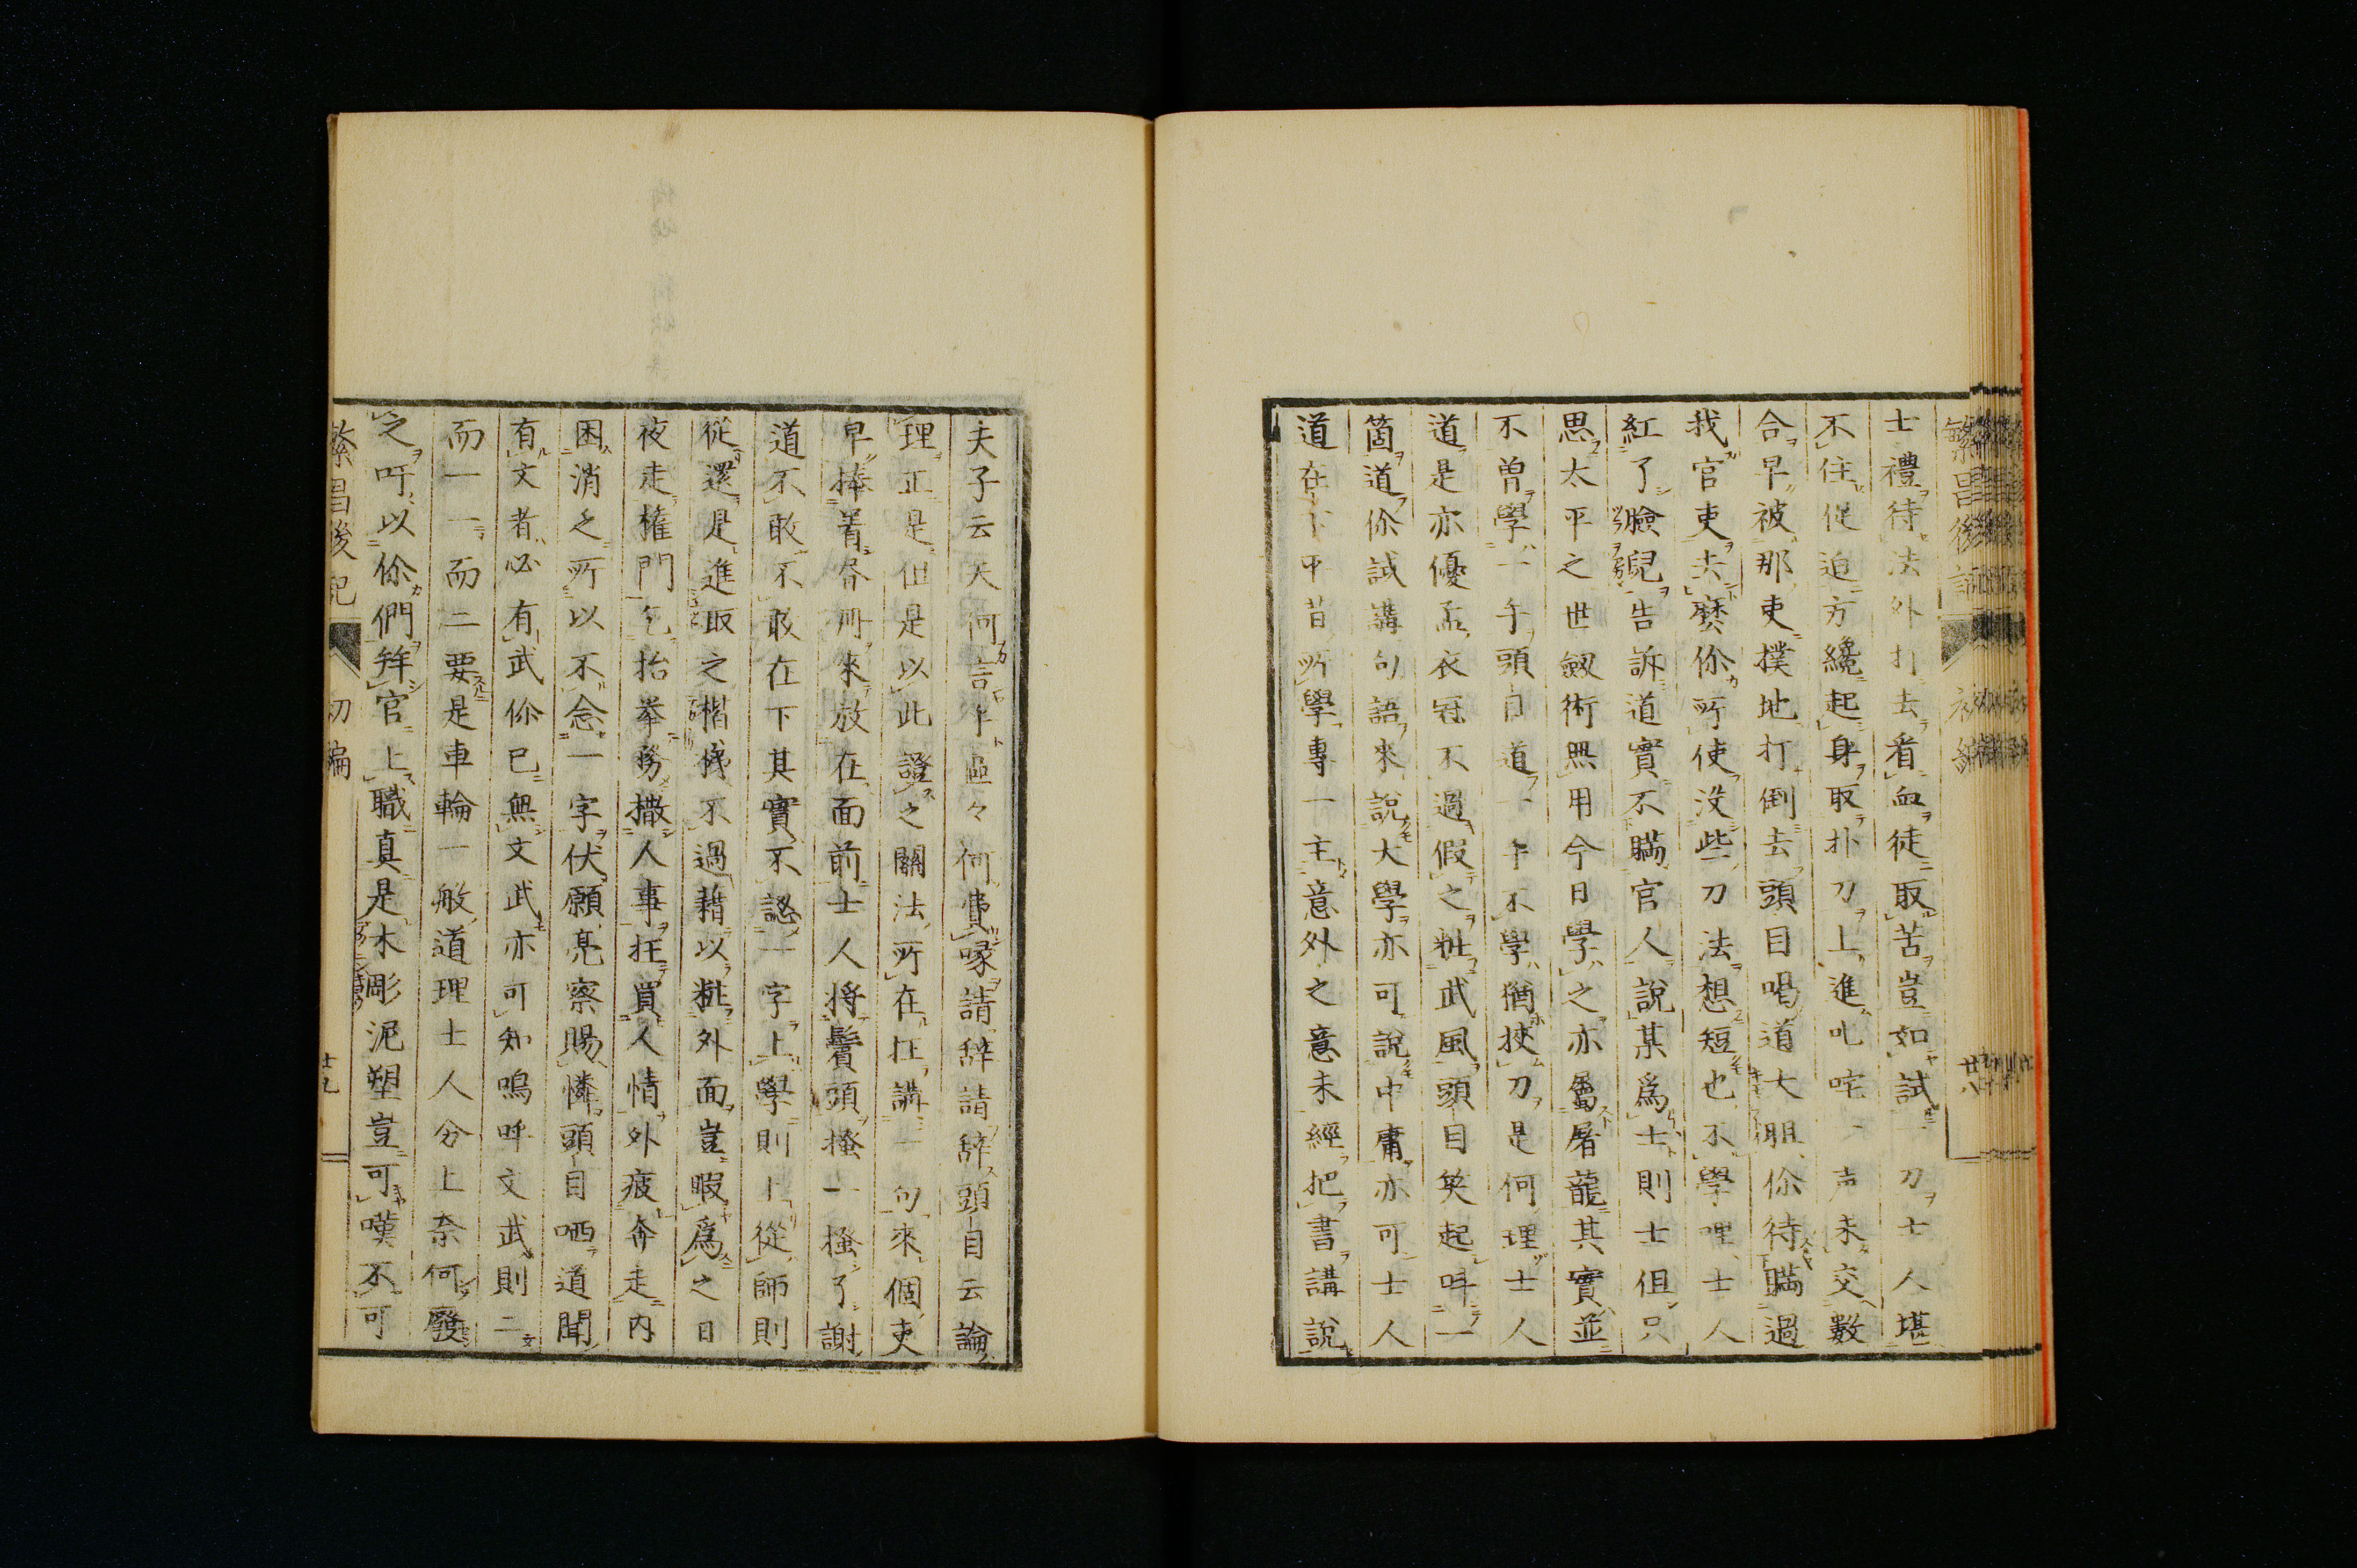 士禮待法外打去看血徒取苦豈如試一刀士人堪
不住促迫方纔起身取扑刀上進叱咤一声未交數
合早被那吏撲地打倒去頭目喝道大胆你待瞞過
我官吏去麼你所使沒些刀法想短也不學哩士人
紅了臉兒告訴道實不瞞官人說某爲士則士但只
思太平之世劔術無用今日學之亦屬屠龍其實並
不曽學一手頭目道一手不學猶挾刀是何理士人
道是亦優孟衣冠不過假之粧武風頭目笑起呌一
箇道你試講句語來說大學亦可說中庸亦可士人
道在下平昔所學專一主意外之意未經把書講說
繁昌後記 初編 廿八
夫子云天何言乎區々何費喙請辞請辞頭目云論
理正是但是以此證之關法所在抂講一句來個吏
早捧著各冊來放在面前士人將鬢頭搔一搔了謝
道不敢不敢在下其實不認一字上學則上從師則
從還是進取之楷梯不過藉以粧外面豈暇爲之日
夜走權門乞抬舉務撒人事抂買人情外疲奔走内
困消之所以不念一字伏願亮察賜憐頭目哂道聞
有文者必有武你已無文武亦可知嗚呼文武則二
而一一而二要是車輪一般道理士人分上奈何廢
之吁以你們拜官上職真是木彫泥塑豈可嘆不可
繁昌後記 初編 廿九